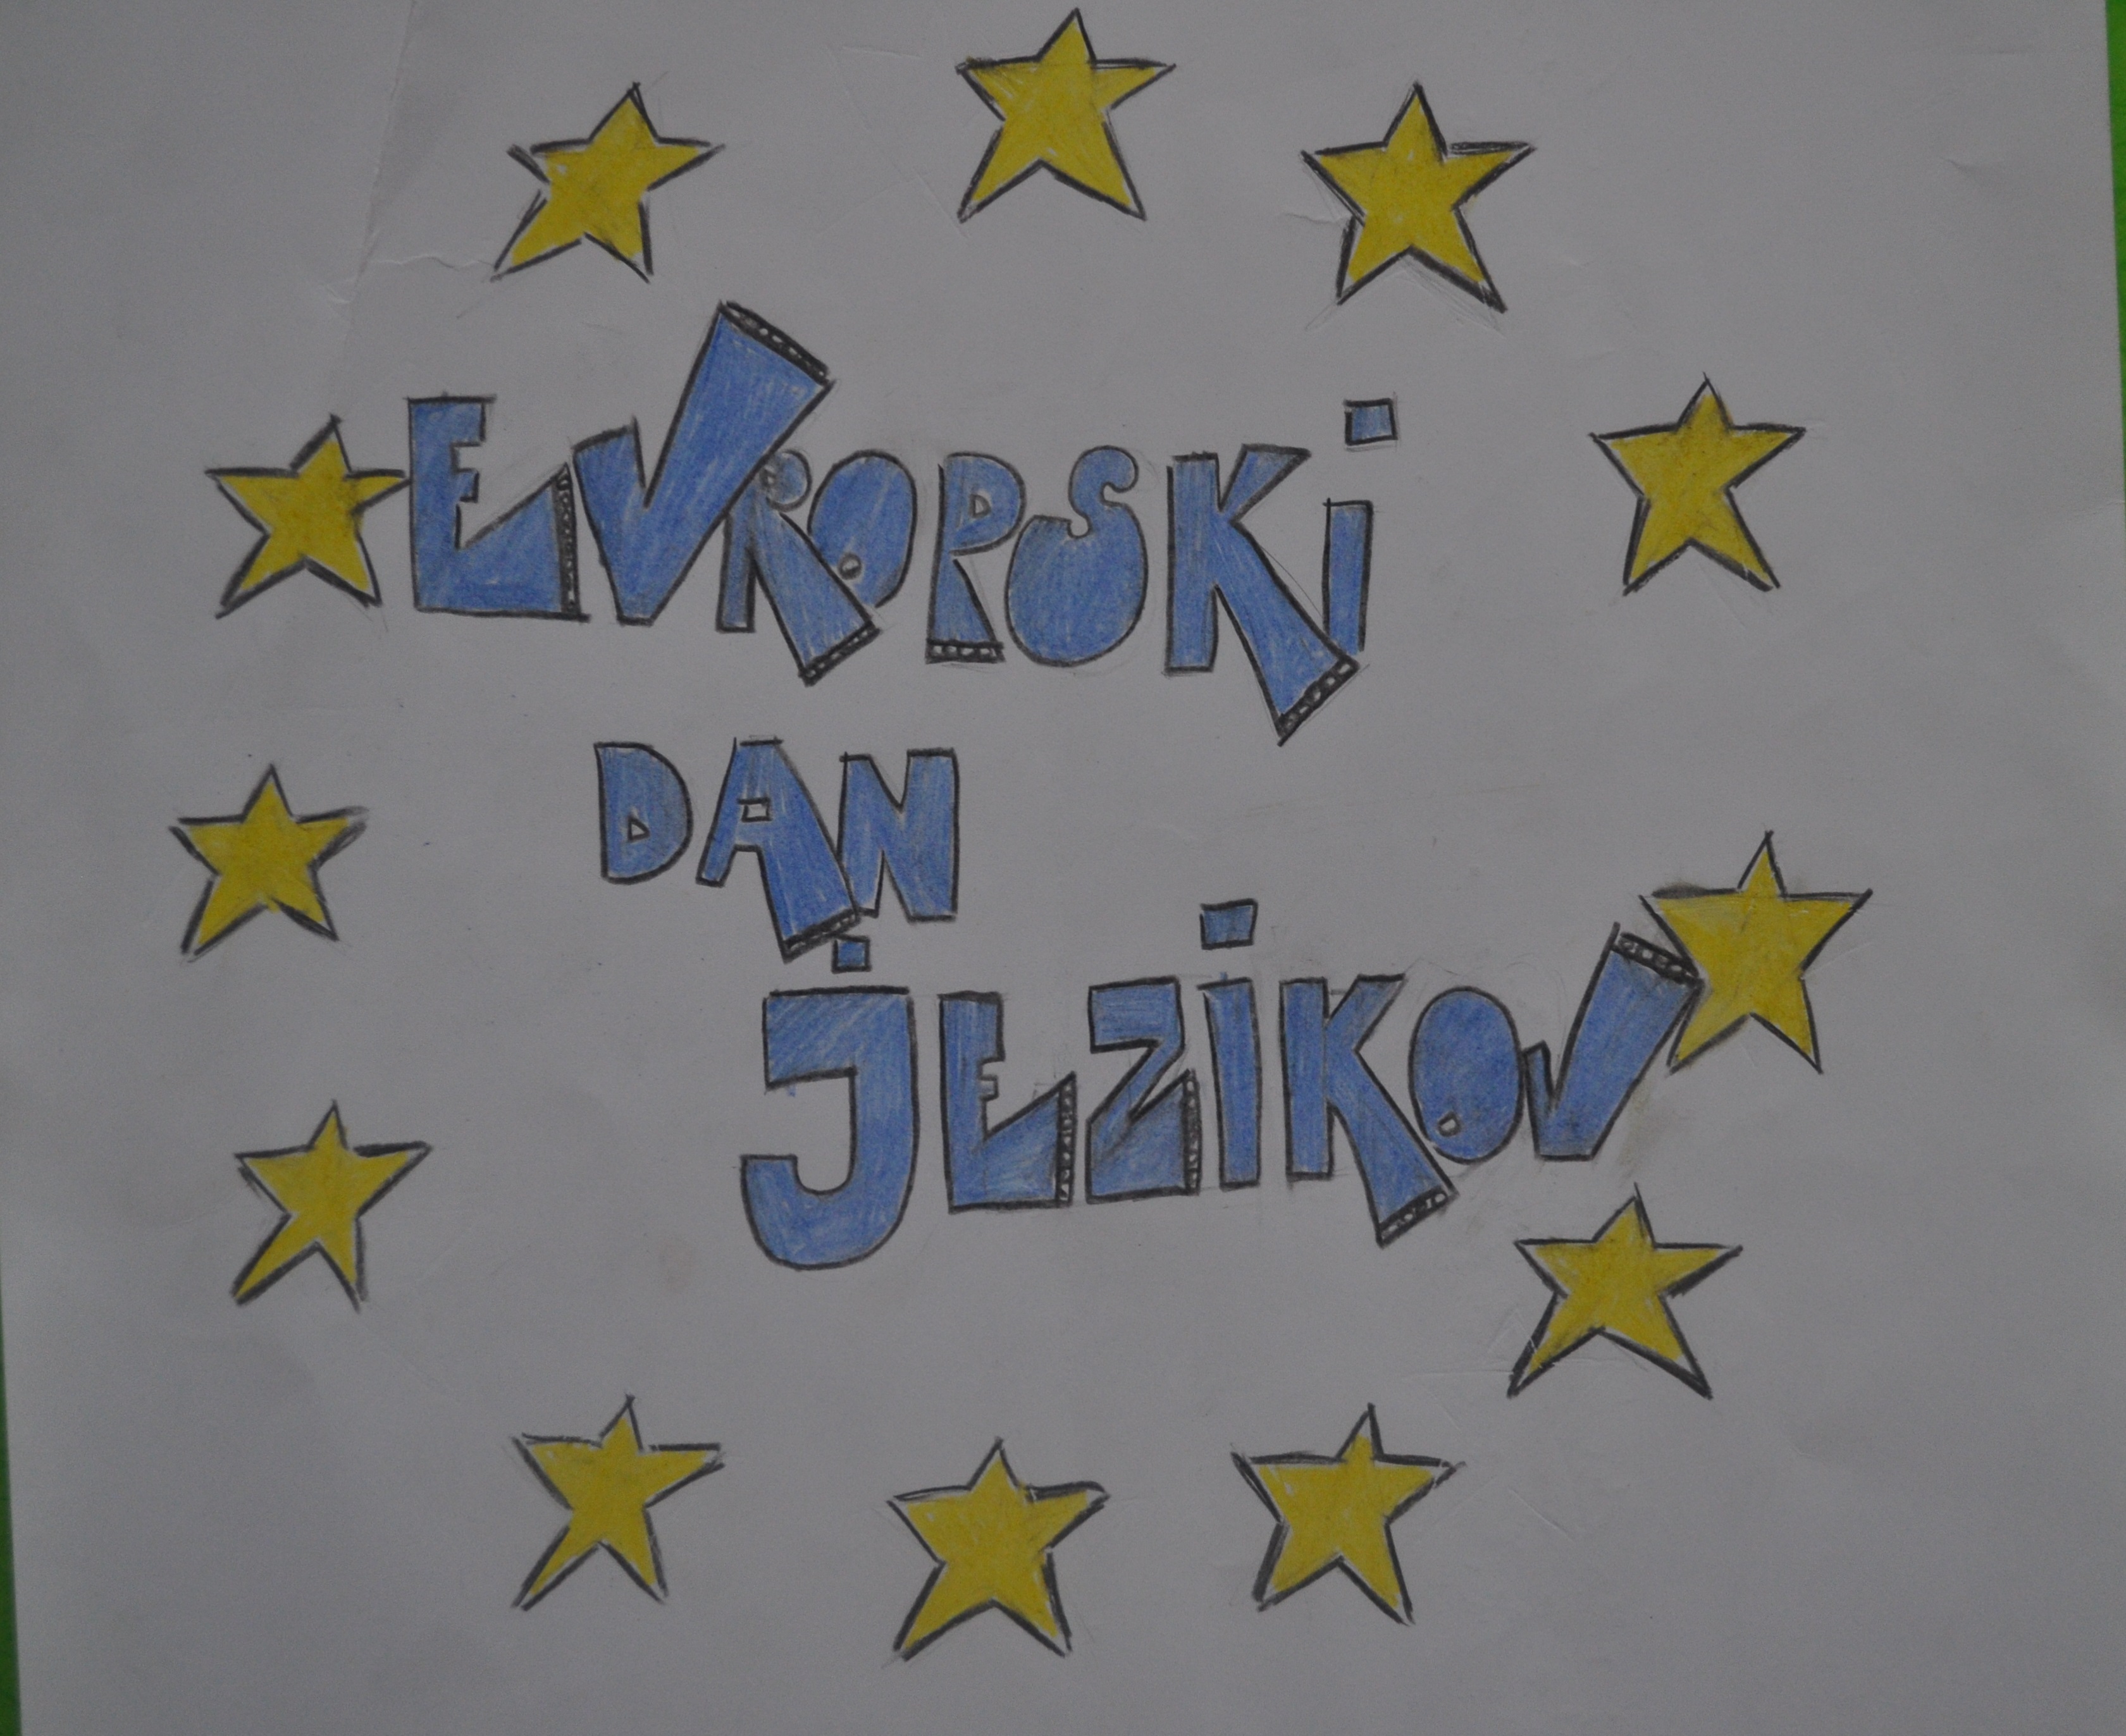 EVROPSKi
DAN
JEZiKOV